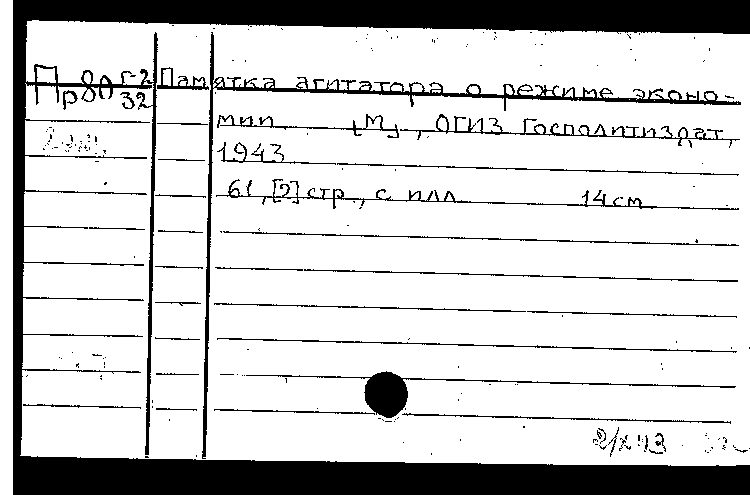 Пр80 Г-2/32
Памятка агитатора о режиме эконо-
мии [М], ОГИЗ Госполитиздат,
1943
61, [2] стр., с илл 14 см
2/X 43